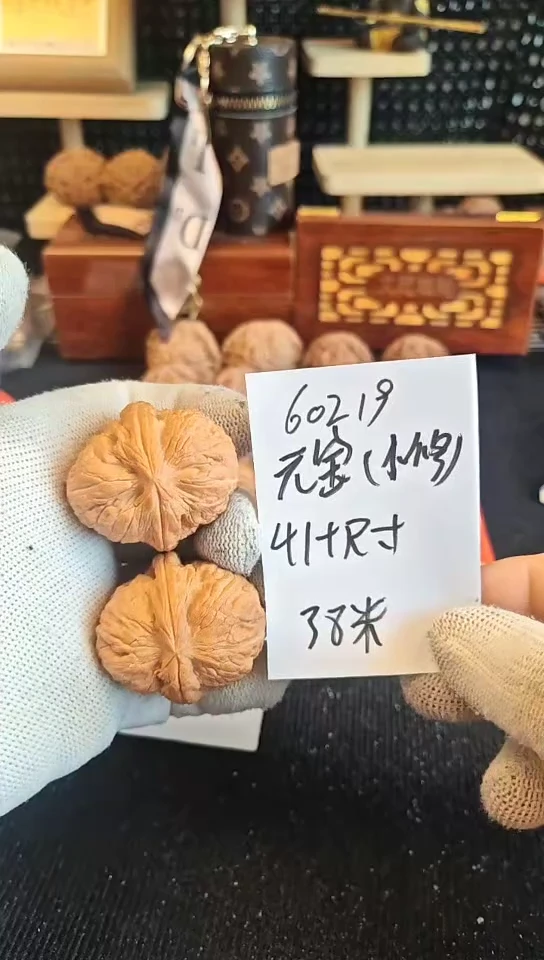 60219
元宝(小修)
41+尺寸
38米